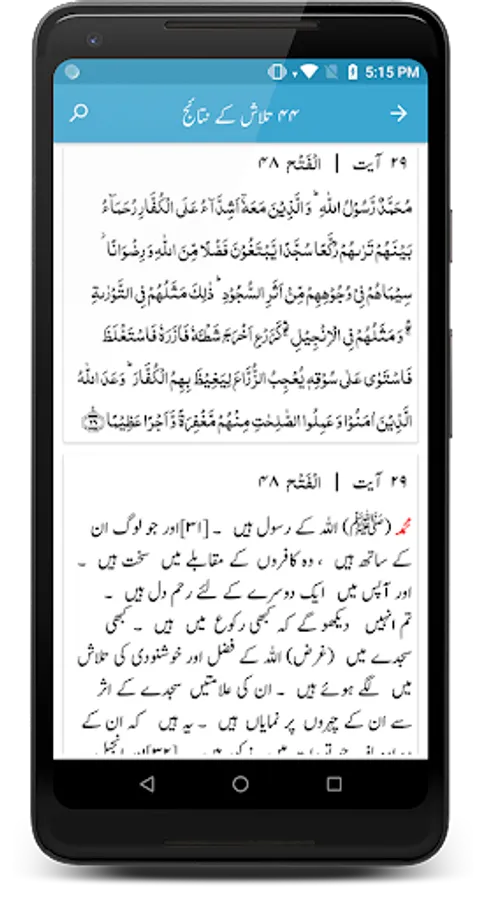 5:15 PM
۴۴ تلاش کے نتائج
۲۹ آیت | الْفَتْح ۴۸
مُحَمَّدٌ رَّسُوْلُ اللّٰهِ ؕ وَالَّذِيْنَ مَعَهٗۤ اَشِدَّآءُ عَلَى الْكُفَّارِ رُحَمَآءُ
بَيْنَهُمْ تَرٰىهُمْ رُكَّعًا سُجَّدًا يَّبْتَغُوْنَ فَضْلًا مِّنَ اللّٰهِ وَرِضْوَانًا ؗ
سِيْمَاهُمْ فِىْ وُجُوْهِهِمْ مِّنْ اَثَرِ السُّجُوْدِ ؕ ذٰلِكَ مَثَلُهُمْ فِى التَّوْرٰٮةِ
وَمَثَلُهُمْ فِى الْاِنْجِيْلِ كَزَرْعٍ اَخْرَجَ شَطْئَهٗ فَاٰزَرَهٗ فَاسْتَغْلَظَ
فَاسْتَوٰى عَلٰى سُوْقِهٖ يُعْجِبُ الزُّرَّاعَ لِيَغِيْظَ بِهِمُ الْكُفَّارَ ؕ وَعَدَ اللّٰهُ
الَّذِيْنَ اٰمَنُوْا وَعَمِلُوا الصّٰلِحٰتِ مِنْهُمْ مَّغْفِرَةً وَّاَجْرًا عَظِيْمًا ۲۹
۲۹ آیت | الْفَتْح ۴۸
محمد (ﷺ) اللہ کے رسول ہیں ۔ [۳۱] اور جو لوگ ان
کے ساتھ ہیں ، وہ کافروں کے مقابلے میں سخت ہیں ۔
اور آپس میں ایک دوسرے کے لئے رحم دل ہیں ۔
تم انہیں دیکھو گے کہ کبھی رکوع میں ہیں ۔ کبھی
سجدے میں (غرض) اللہ کے فضل اور خوشنودی کی تلاش
میں لگے ہوئے ہیں ۔ ان کی علامتیں سجدے کے اثر
سے ان کے چہروں پر نمایاں ہیں ۔ یہ ہیں کہ ان کے